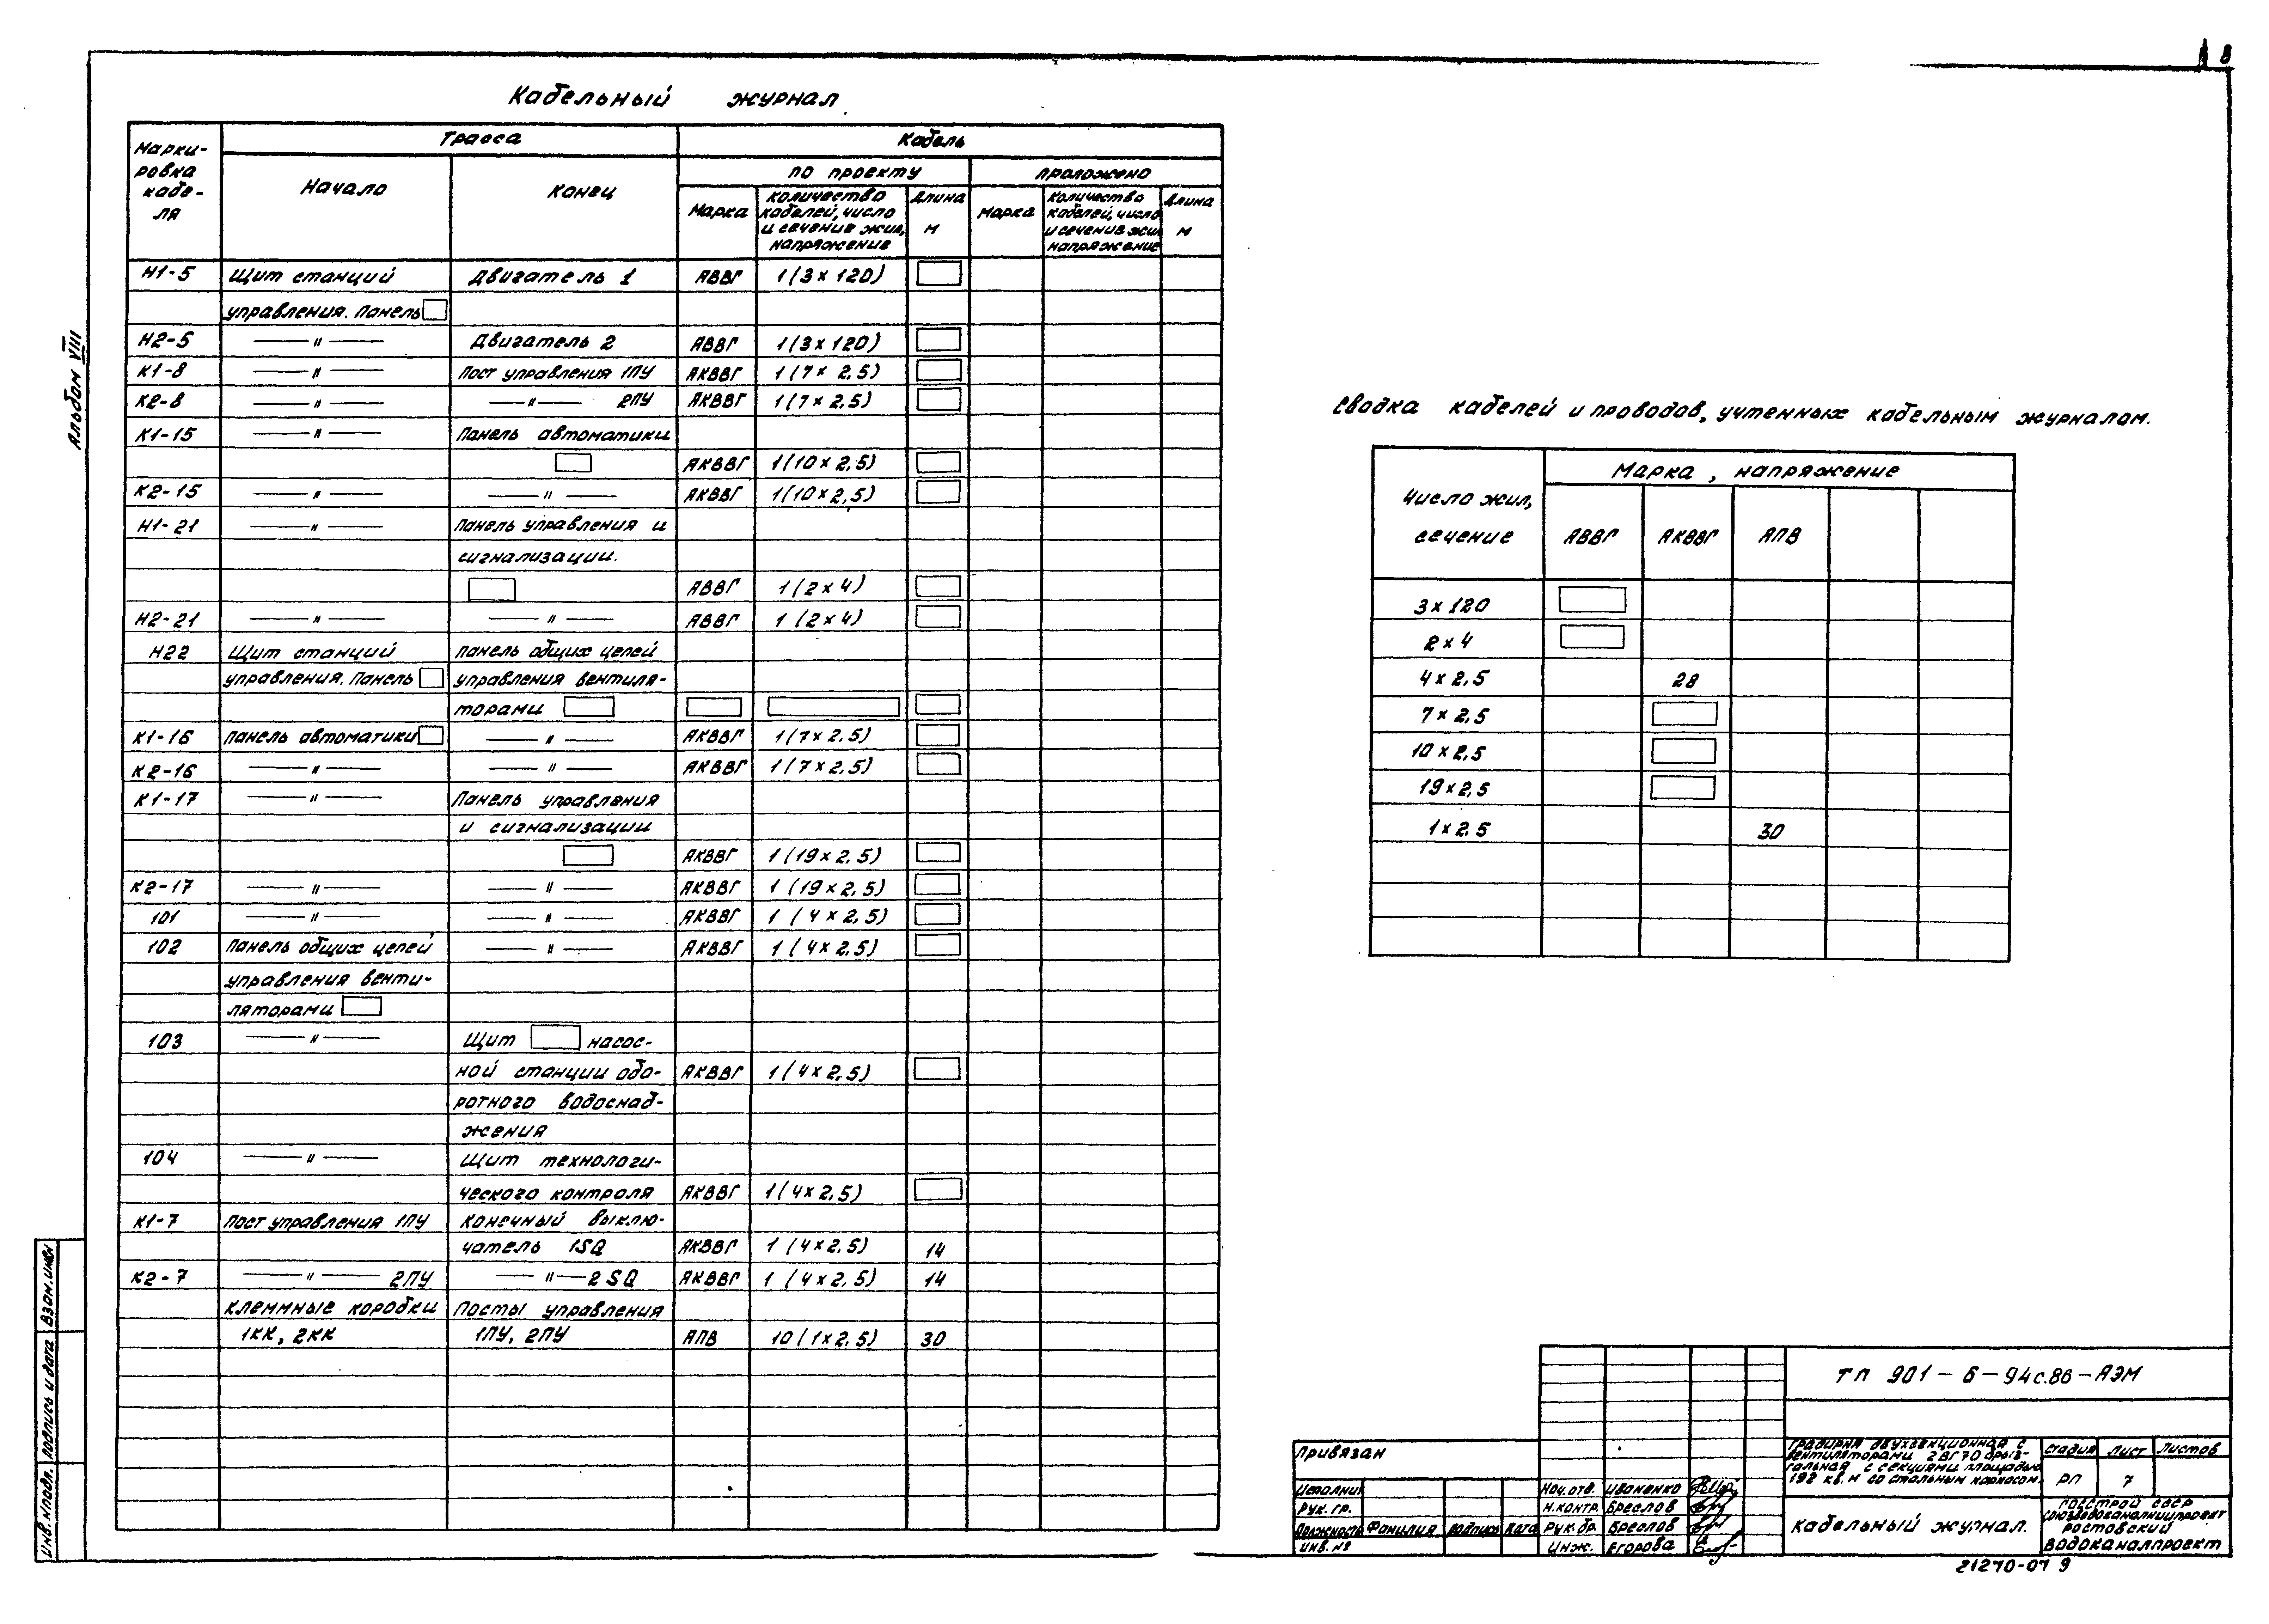 8
Альбом VIII
Кабельный журнал
Марки-
ровка
кабе-
ля
Трасса
Кабель
Начало
Конец
по проекту
проложено
Марка
Количество
кабелей, число
и сечение жил,
напряжение
Длина
м
Марка
Количество
кабелей, число
и сечение жил
напряжение
Длина
м
Н1-5 Щит станций Двигатель 1 АВВГ 1(3×120)
управления. Панель
Н2-5 —〃— Двигатель 2 АВВГ 1(3×120)
К1-8 —〃— Пост управления 1ПУ АКВВГ 1(7×2,5)
К2-8 —〃— —〃— 2ПУ АКВВГ 1(7×2,5)
К1-15 —〃— Панель автоматики
АКВВГ 1(10×2,5)
К2-15 —〃— —〃— АКВВГ 1(10×2,5)
Н1-21 —〃— Панель управления и
сигнализации.
АВВГ 1(2×4)
Н2-21 —〃— —〃— АВВГ 1(2×4)
Н22 Щит станций Панель общих цепей
управления. Панель управления вентиля-
торами
К1-16 Панель автоматики —〃— АКВВГ 1(7×2,5)
К2-16 —〃— —〃— АКВВГ 1(7×2,5)
К1-17 —〃— Панель управления
и сигнализации
АКВВГ 1(19×2,5)
К2-17 —〃— —〃— АКВВГ 1(19×2,5)
101 —〃— —〃— АКВВГ 1(4×2,5)
102 Панель общих цепей —〃— АКВВГ 1(4×2,5)
управления венти-
ляторами
103 —〃— Щит насос-
ной станции обо- АКВВГ 1(4×2,5)
ротного водоснаб-
жения
104 —〃— Щит технологи-
ческого контроля АКВВГ 1(4×2,5)
К1-7 Пост управления 1ПУ Конечный выклю-
чатель 1SQ АКВВГ 1(4×2,5) 14
К2-7 —〃— 2ПУ —〃— 2SQ АКВВГ 1(4×2,5) 14
Клеммные коробки Посты управления
1КК, 2КК 1ПУ, 2ПУ АПВ 10(1×2,5) 30
Сводка кабелей и проводов, учтенных кабельным журналом.
Число жил,
сечение
Марка, напряжение
АВВГ АКВВГ АПВ
3×120
2×4
4×2,5 28
7×2,5
10×2,5
19×2,5
1×2,5 30
ТП 901-6-94с.86-АЭМ
Градирня двухсекционная с
вентиляторами 2ВГ70 брыз-
гальная с секциями площадью
192 кв.м со стальным каркасом.
Стадия Лист Листов
РП 7
Кабельный журнал.
Госстрой СССР
Союзводоканалниипроект
Ростовский
Водоканалпроект
Привязан
Исполнил
Рук. гр.
Должность Фамилия Подпись Дата
Инв. №
Нач. отд. Иваненко
Н.контр. Бреслов
Рук. бр. Бреслов
Инж. Егорова
21270-07 9
Инв. № подл. Подпись и дата Взам. инв. №